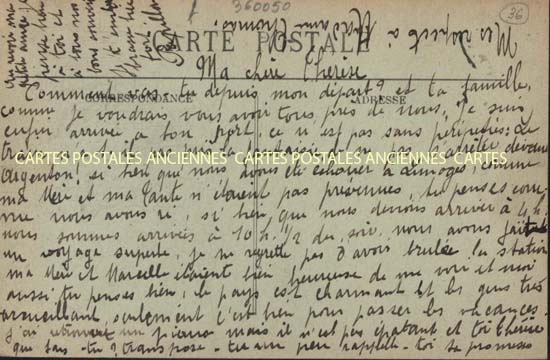 360050
36
Mes respects à Madame Thomas
CARTE POSTALE
CORRESPONDANCE
ADRESSE
Ma chère Therèse
Comment vas-tu depuis mon départ? et ta famille,
comme je voudrais vous avoir tous près de nous, je suis
enfin arrivée à bon port, ce n'est pas sans péripéties: Le
train pas s'arrêter devant
CARTES POSTALES ANCIENNES CARTES POSTALES ANCIENNES CARTES POSTALES ANCIENNES
Argenton! si bien que nous avons été échouer à Limoges, comme
ma Mère et ma tante n'étaient pas prévenues, tu penses com-
me nous avons ri, si bien que nous devions arriver à 4 h.
nous sommes arrivées à 10 h. 1/2 du soir, nous avons fait
un voyage superbe, je ne regrette pas d'avoir brulée la station
ma Mère et Marcelle étaient bien heureuse de me voir et moi
aussi tu penses bien, le pays est charmant et les gens très
accueillant, seulement c'est bien pour passer les vacances.
j'ai retrouvé un pierro mais il n'est pas épatant et toi Therèse
que fais-tu? transpose-tu un peu rappelle-toi ta promesse